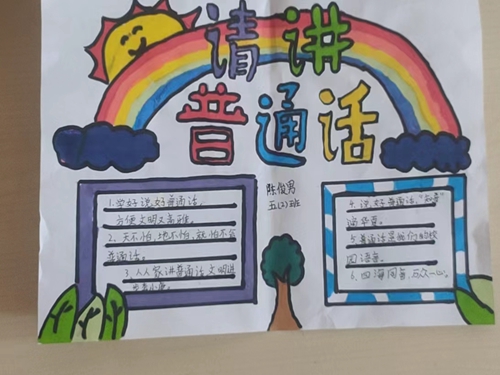 请讲
普通话
陈俊男
五(2)班
1.学好说好普通话,
方便文明又高雅。
2、天不怕,地不怕,就怕不会
普通话。
3、人人家讲普通话,文明进
4、说好普通话,"知音"
遍华夏。
5、普通话是我们的校
园语言。
6、四海同音,万众一心。